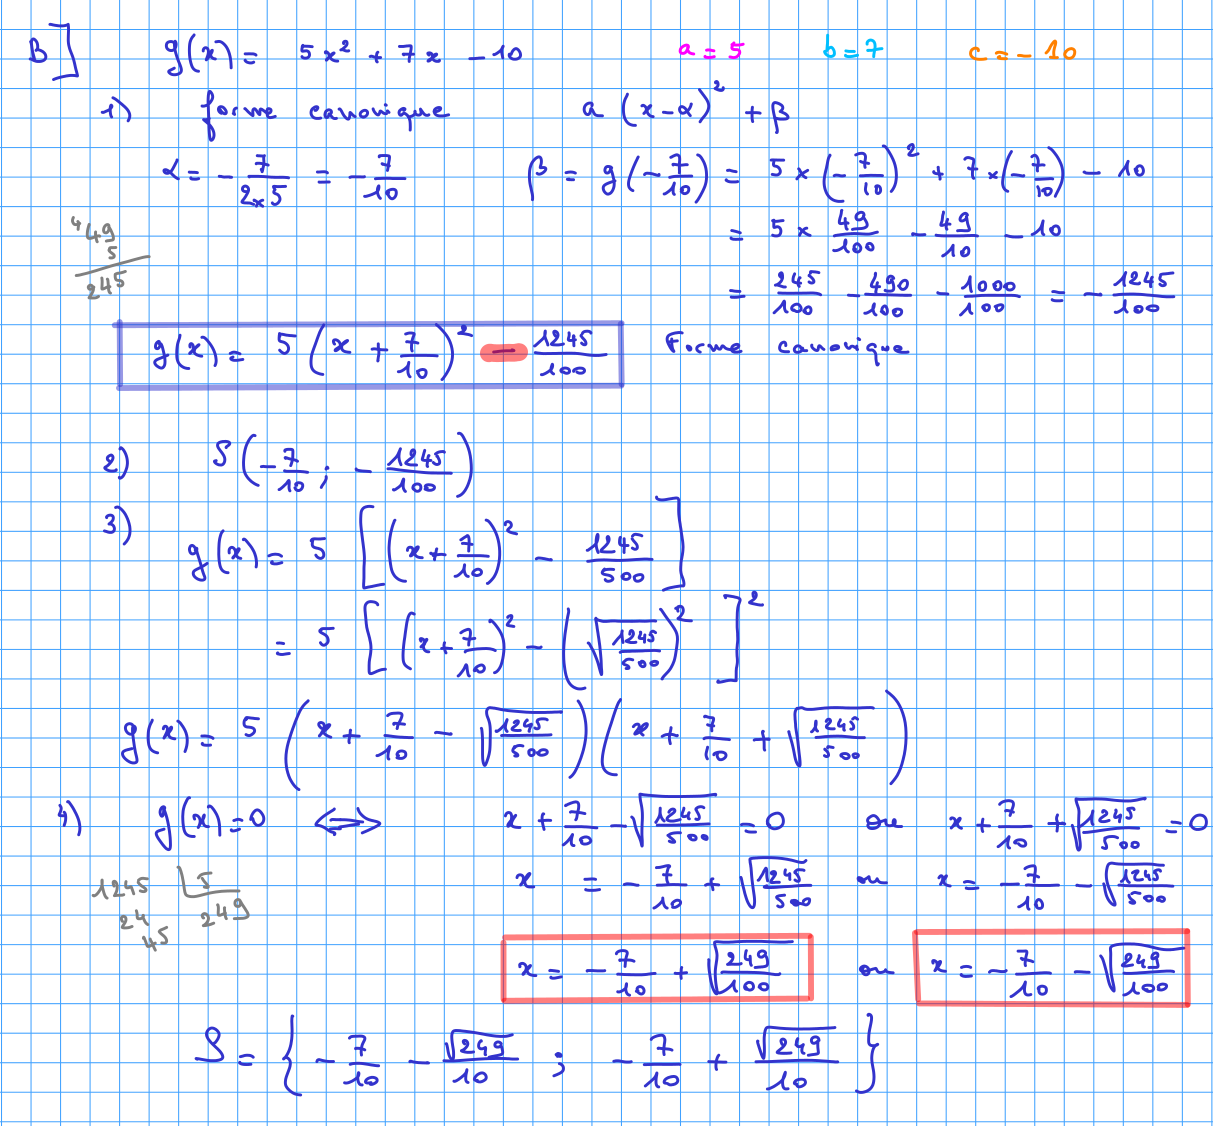 B] g(x) = 5x² + 7x - 10 a = 5 b = 7 c = - 10
1) forme canonique a (x-α)² + β
α = - 7/(2×5) = - 7/10 β = g(-7/10) = 5 × (-7/10)² + 7×(-7/10) - 10
= 5 × 49/100 - 49/10 - 10
⁴49
5
245
= 245/100 - 490/100 - 1000/100 = - 1245/100
g(x) = 5 (x + 7/10)² - 1245/100 Forme canonique
2) S(-7/10 ; - 1245/100)
3)
g(x) = 5 [(x + 7/10)² - 1245/500]
= 5 [(x + 7/10)² - (√(1245/500))²]²
g(x) = 5 (x + 7/10 - √(1245/500)) (x + 7/10 + √(1245/500))
4) g(x) = 0 ⟺ x + 7/10 - √(1245/500) = 0 ou x + 7/10 + √(1245/500) = 0
x = - 7/10 + √(1245/500) ou x = - 7/10 - √(1245/500)
1245 5
24 249
45
x = - 7/10 + √(249/100) ou x = - 7/10 - √(249/100)
S = { - 7/10 - √249/10 ; - 7/10 + √249/10 }